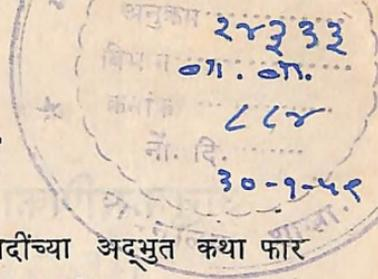 अनुक्रम २४३३३
विभाग ना. ना.
क्रमांक ८८४
नों. दि.
३०-१-५९
शाळा.
दींच्या अद्भुत कथा फार